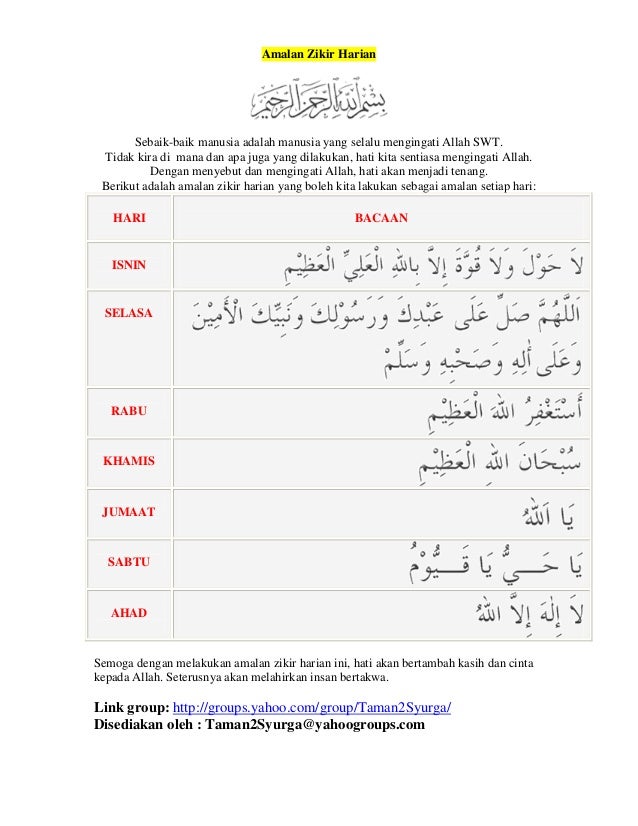 Amalan Zikir Harian
بِسْمِ اللهِ الرَّحْمٰنِ الرَّحِيْمِ
Sebaik-baik manusia adalah manusia yang selalu mengingati Allah SWT.
Tidak kira di mana dan apa juga yang dilakukan, hati kita sentiasa mengingati Allah.
Dengan menyebut dan mengingati Allah, hati akan menjadi tenang.
Berikut adalah amalan zikir harian yang boleh kita lakukan sebagai amalan setiap hari:
HARI BACAAN
ISNIN لَا حَوْلَ وَلَا قُوَّةَ إِلاَّ بِاللهِ الْعَلِيِّ الْعَظِيْمِ
SELASA اَللَّهُمَّ صَلِّ عَلَى عَبْدِكَ وَرَسُوْلِكَ وَنَبِيِّكَ الْأَمِيْنَ
وَعَلَى أٰلِهِ وَصَحْبِهِ وَسَلِّمْ
RABU أَسْتَغْفِرُ اللهَ الْعَظِيْمِ
KHAMIS سُبْحَانَ اللهِ الْعَظِيْمِ
JUMAAT يَا اَللهُ
SABTU يَا حَــيُّ يَا قَــيُّوْمُ
AHAD لَا إِلٰهَ إِلاَّ اللهُ
Semoga dengan melakukan amalan zikir harian ini, hati akan bertambah kasih dan cinta
kepada Allah. Seterusnya akan melahirkan insan bertakwa.
Link group: http://groups.yahoo.com/group/Taman2Syurga/
Disediakan oleh : Taman2Syurga@yahoogroups.com